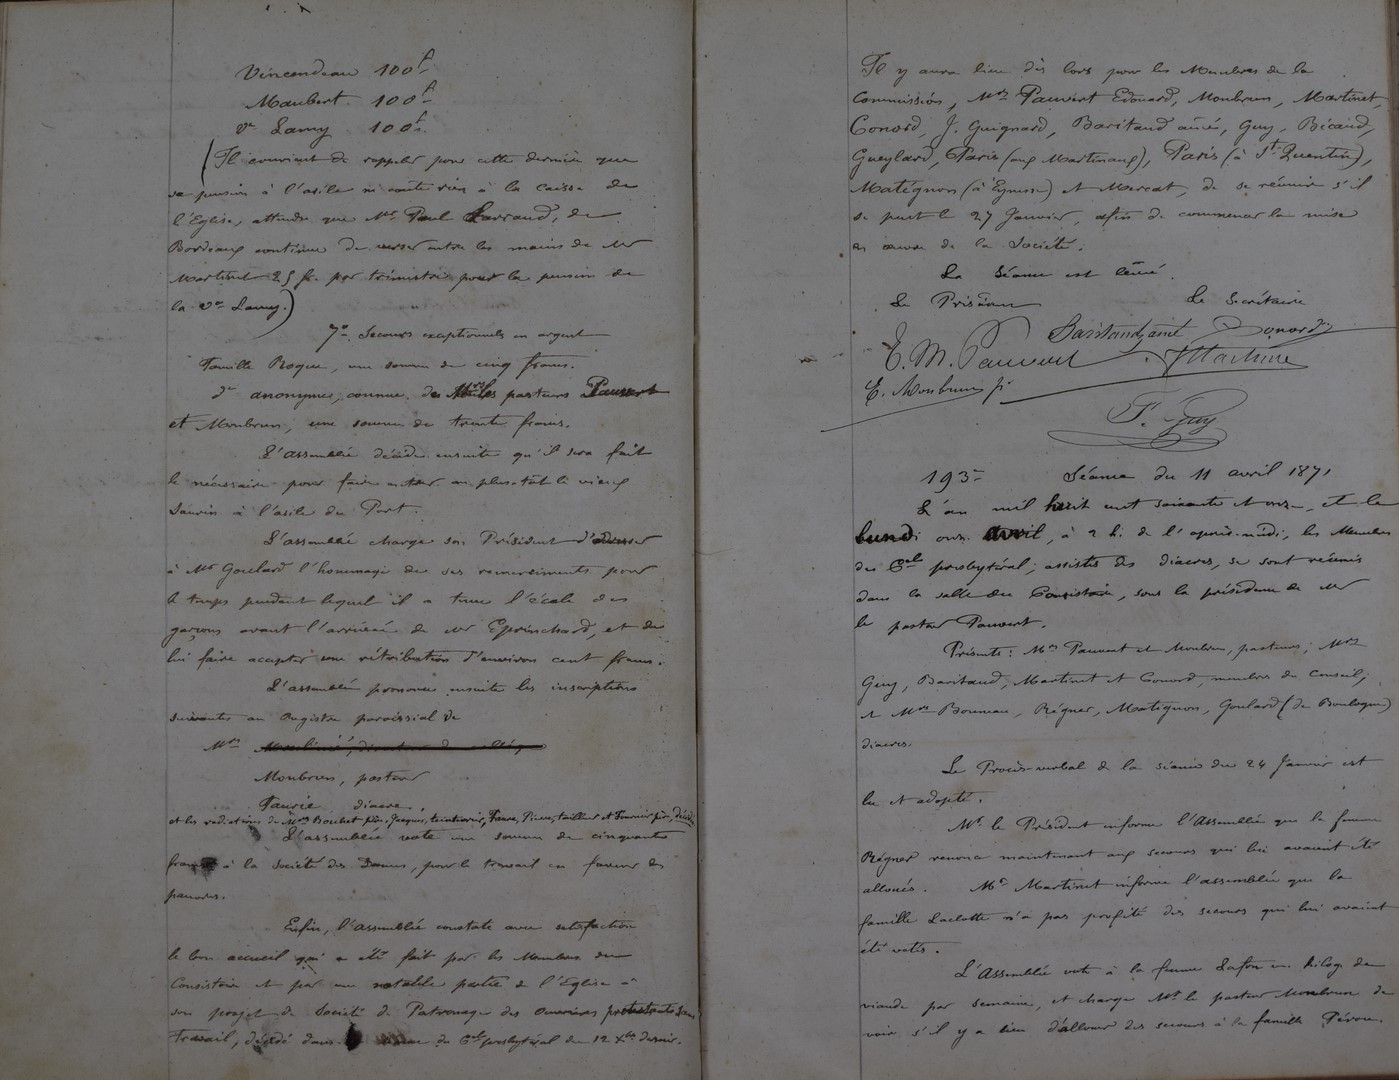 Vincendeau 100f
Maubert 100f
Ve Lamy 100f.
(Il convient de rappeler pour cette dernière que
sa pension à l'asile ne coûte rien à la caisse de
l'Eglise, attendu que Mr Paul Larraud, de
Bordeaux continue de verser entre les mains de Mr
Martinet 25 fr. par trimestre pour la pension de
la Ve Lamy.)
7o Secours exceptionnels en argent
Famille Roque, une somme de cinq francs.
do anonyme, connue de Mrs les pasteurs Pauvert
et Monbrun, une somme de trente francs.
L'assemblée décide ensuite qu'il sera fait
le nécessaire pour faire entrer au plus-tôt le vieux
Saurin à l'asile du Port.
L'assemblée charge son Président d'adresser
à Mr Goulard l'hommage de ses remerciments pour
le temps pendant lequel il a tenu l'école des
garçons avant l'arrivée de Mr Eprinchard, et de
lui faire accepter une rétribution d'environ cent francs.
L'assemblée prononce ensuite les inscriptions
suivantes au Registre paroissial de
Mrs
Monbrun, pasteur
Faurie diacre.
et les radiations de Mrs Bouhet père, Jacques, teinturier, Faure, Pieux, tailleur et Fournier père, décédés
L'assemblée vote une somme de cinquante
francs à la Société des Dames, pour le travail en faveur des
pauvres.
Enfin, l'assemblée constate avec satisfaction
le bon accueil qui a été fait par les Membres du
Consistoire et par une notable partie de l'Eglise à
son projet de Société de Patronage des Ouvriers protestants sans
travail, décidé dans la séance du Cel presbytéral du 12 Xbre dernier.
Il y aura lieu dès lors pour les Membres de la
Commission, Mrs Pauvert Edouard, Monbrun, Martinet,
Conord, J. Guignard, Baritaud aîné, Guy, Bicaud,
Gueylard, Paris (aux Martinaux), Paris (à St Quentin),
Matignon (à Eynesse) et Mercat, de se réunir s'il
se peut le 27 Janvier, afin de commencer la mise
en œuvre de la Société.
La Séance est levée.
Le Président Le Secrétaire
E. M. Pauvert Baritaud, ainé Conord
Martinet
E. Monbrun
F. Guy
193e Séance du 11 avril 1871
L'an mil huit cent soixante et onze, et le
lundi onze avril, à 2 h. de l'après-midi, les Membres
du Cel presbytéral, assistés des diacres, se sont réunis
dans la salle du Consistoire, sous la présidence de Mr
le pasteur Pauvert.
Présents: Mrs Pauvert et Monbrun, pasteurs; Mrs
Guy, Baritaud, Martinet et Conord, membres du Conseil;
et Mrs Bonneau, Régner, Matignon, Goulard (de Boulogne)
diacres.
Le Procès-verbal de la séance du 24 Janvier est
lu et adopté.
Mr le Président informe l'Assemblée que la femme
Régner renonce maintenant aux secours qui lui avaient été
alloués. Mr Martinet informe l'assemblée que la
famille Laclotte n'a pas profité des secours qui lui avaient
été votés.
L'Assemblée vote à la femme Lafon un kilog de
viande par semaine, et charge Mr le pasteur Monbrun de
voir s'il y a lieu d'allouer des secours à la famille Péron.